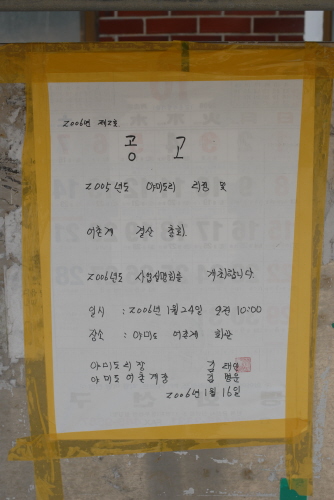 2006년 제2호
공 고
2005년도 야미도리 리정 및
어촌계 결산 총회.
2006년도 사업설명회를 개최합니다.
일시 : 2006년 1월 24일 오전 10:00
장소 : 야미도 어촌계 회관
야미도리장 김
야미도어촌계장 김
2006년 1월 16일